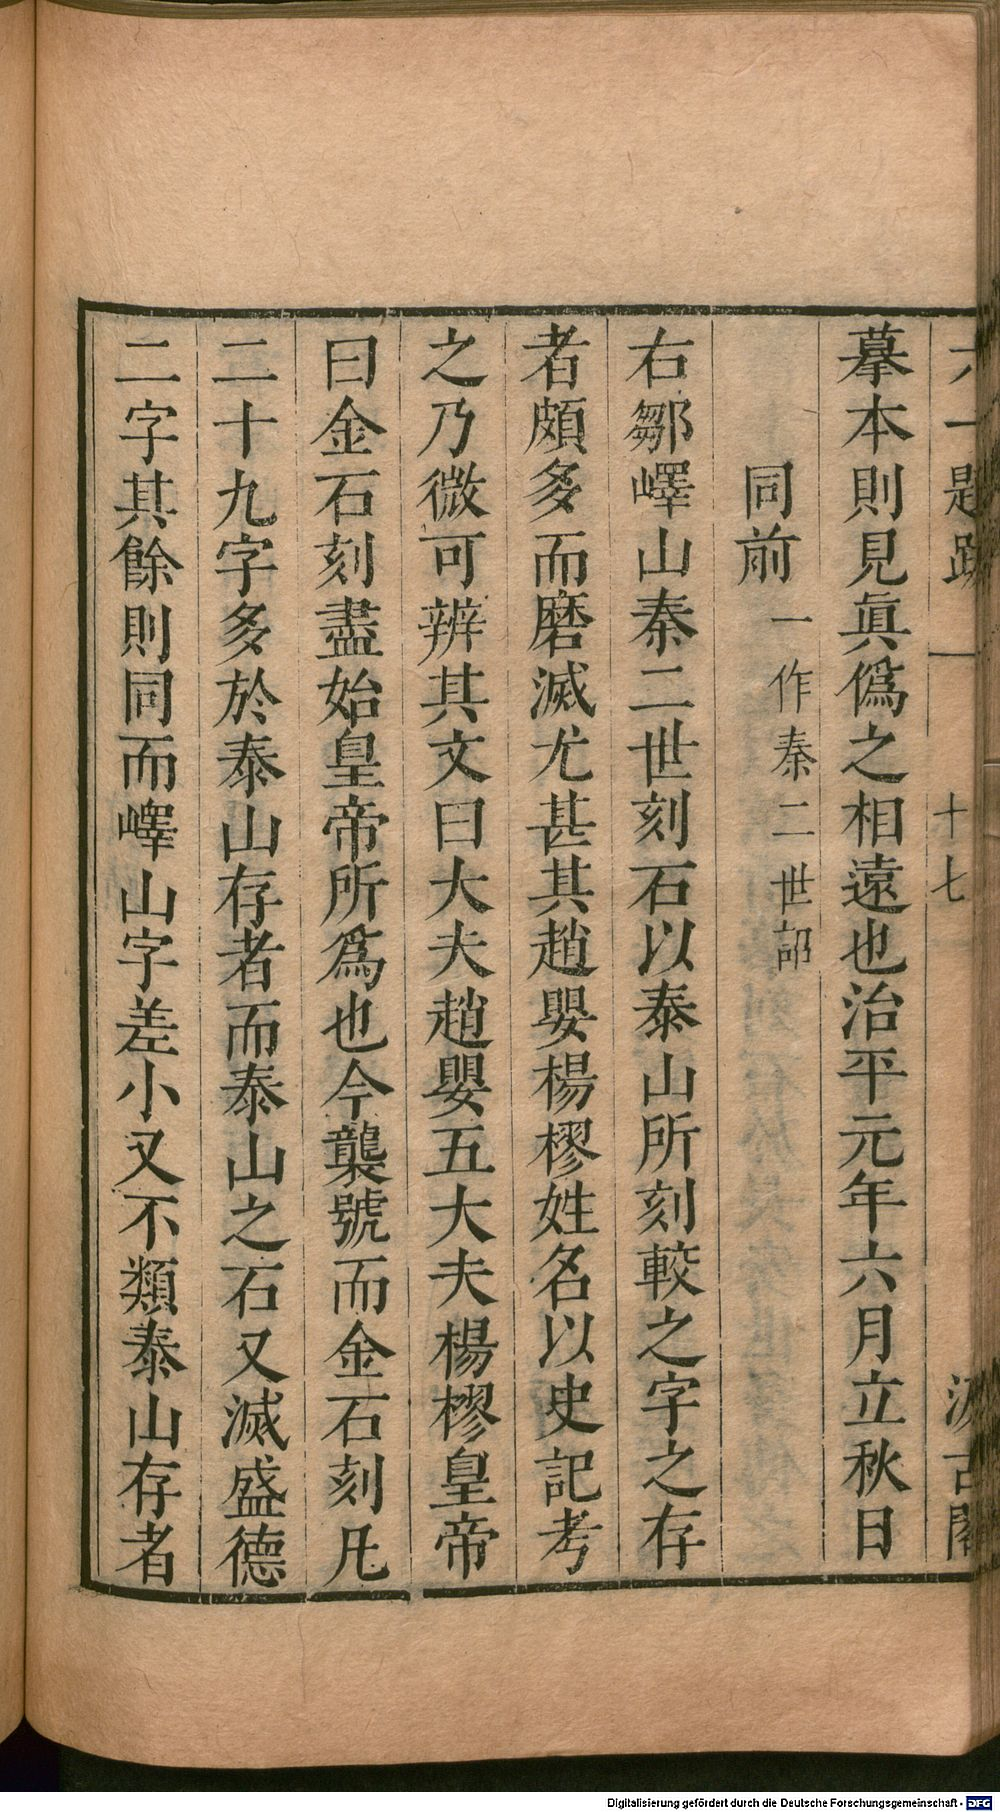 六一題跋 一 十七 汲古閣
摹本則見眞僞之相遠也治平元年六月立秋日
同前一作秦二世詔
右鄒嶧山秦二世刻石以泰山所刻較之字之存
者頗多而磨滅尤甚其趙嬰楊樛姓名以史記考
之乃微可辨其文曰大夫趙嬰五大夫楊樛皇帝
曰金石刻盡始皇帝所爲也今襲號而金石刻凡
二十九字多於泰山存者而泰山之石又滅盛德
二字其餘則同而嶧山字差小又不類泰山存者
Digitalisierung gefördert durch die Deutsche Forschungsgemeinschaft - DFG